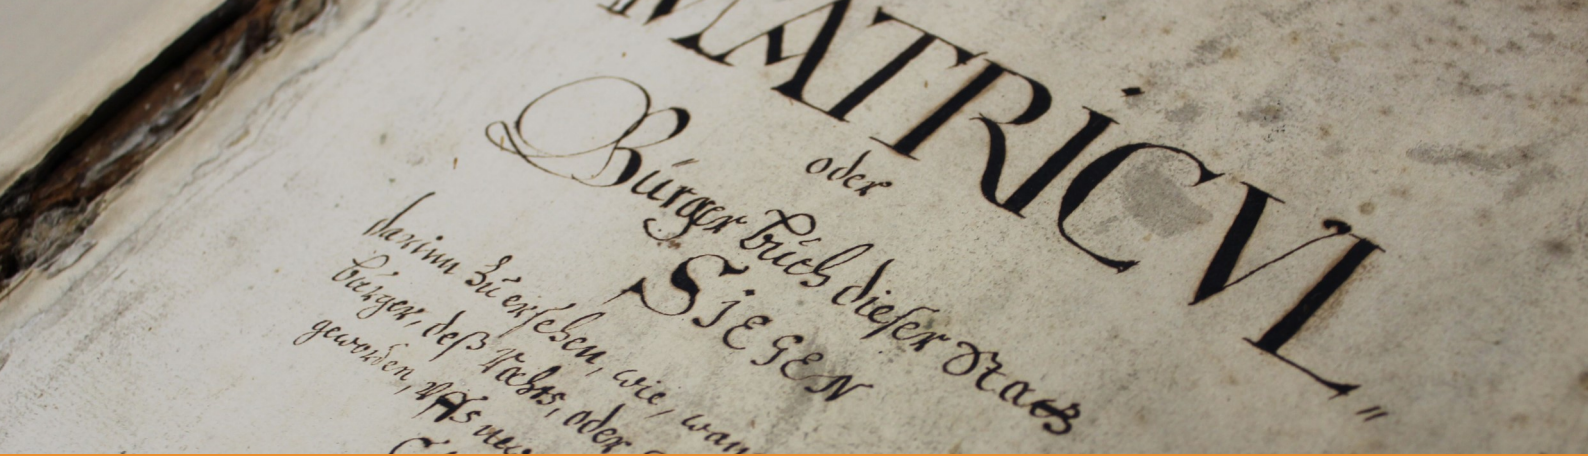 MATRICVL"
oder
Bürger büch dieser Statt
SIEGEN
darinn zü ersehen, wie, wan
bürger, deß Rahts, oder
geworden, Vffs neü